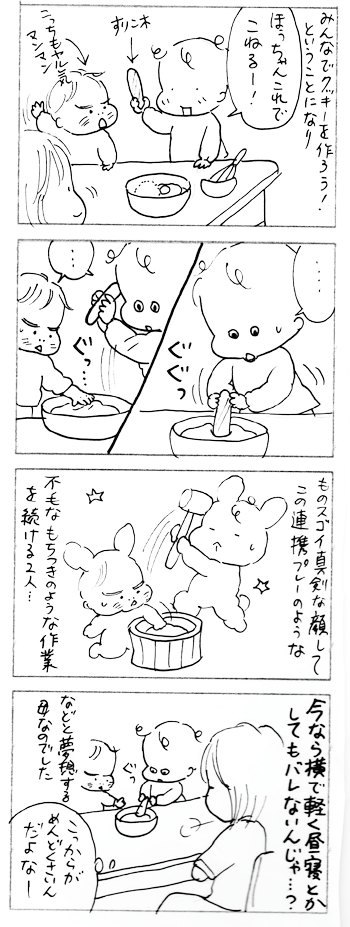 みんなでクッキーを作ろう!
ということになり
ほうちゃんこれで
こねるー!
すりこ木
こっちもヤル気
マンマン
…
ぐぐっ
…
ぐっ…
ものスゴイ真剣な顔して
この連携プレーのような
不毛なもちつきのような作業
を続ける2人…
今なら横で軽く昼寝とか
してもバレないんじゃ…?
ぐっ
などと夢想する
母なのでした
こっからが
めんどくさいん
だよなー